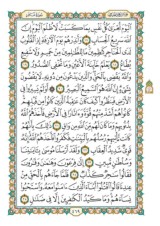 ٱلْيَوْمَ تُجْزَىٰ كُلُّ نَفْسٍۭ بِمَا كَسَبَتْ لَا ظُلْمَ ٱلْيَوْمَ إِنَّ
ٱللَّهَ سَرِيعُ ٱلْحِسَابِ ١٧ وَأَنذِرْهُمْ يَوْمَ ٱلْـَٔازِفَةِ إِذِ ٱلْقُلُوبُ
لَدَى ٱلْحَنَاجِرِ كَٰظِمِينَ مَا لِلظَّٰلِمِينَ مِنْ حَمِيمٍ وَلَا شَفِيعٍ
يُطَاعُ ١٨ يَعْلَمُ خَآئِنَةَ ٱلْأَعْيُنِ وَمَا تُخْفِى ٱلصُّدُورُ ١٩
وَٱللَّهُ يَقْضِى بِٱلْحَقِّ وَٱلَّذِينَ يَدْعُونَ مِن دُونِهِۦ لَا يَقْضُونَ
بِشَىْءٍ إِنَّ ٱللَّهَ هُوَ ٱلسَّمِيعُ ٱلْبَصِيرُ ٢٠ أَوَلَمْ يَسِيرُوا۟ فِى
ٱلْأَرْضِ فَيَنظُرُوا۟ كَيْفَ كَانَ عَٰقِبَةُ ٱلَّذِينَ كَانُوا۟ مِن قَبْلِهِمْ
كَانُوا۟ هُمْ أَشَدَّ مِنْهُمْ قُوَّةً وَءَاثَارًا فِى ٱلْأَرْضِ فَأَخَذَهُمُ ٱللَّهُ
بِذُنُوبِهِمْ وَمَا كَانَ لَهُم مِّنَ ٱللَّهِ مِن وَاقٍ ٢١ ذَٰلِكَ بِأَنَّهُمْ كَانَت
تَّأْتِيهِمْ رُسُلُهُم بِٱلْبَيِّنَٰتِ فَكَفَرُوا۟ فَأَخَذَهُمُ ٱللَّهُ إِنَّهُۥ قَوِىٌّ
شَدِيدُ ٱلْعِقَابِ ٢٢ وَلَقَدْ أَرْسَلْنَا مُوسَىٰ بِـَٔايَٰتِنَا
وَسُلْطَٰنٍ مُّبِينٍ ٢٣ إِلَىٰ فِرْعَوْنَ وَهَٰمَٰنَ وَقَٰرُونَ
فَقَالُوا۟ سَٰحِرٌ كَذَّابٌ ٢٤ فَلَمَّا جَآءَهُم بِٱلْحَقِّ مِنْ
عِندِنَا قَالُوا۟ ٱقْتُلُوٓا۟ أَبْنَآءَ ٱلَّذِينَ ءَامَنُوا۟ مَعَهُۥ وَٱسْتَحْيُوا۟
نِسَآءَهُمْ وَمَا كَيْدُ ٱلْكَٰفِرِينَ إِلَّا فِى ضَلَٰلٍ ٢٥
٤٦٩